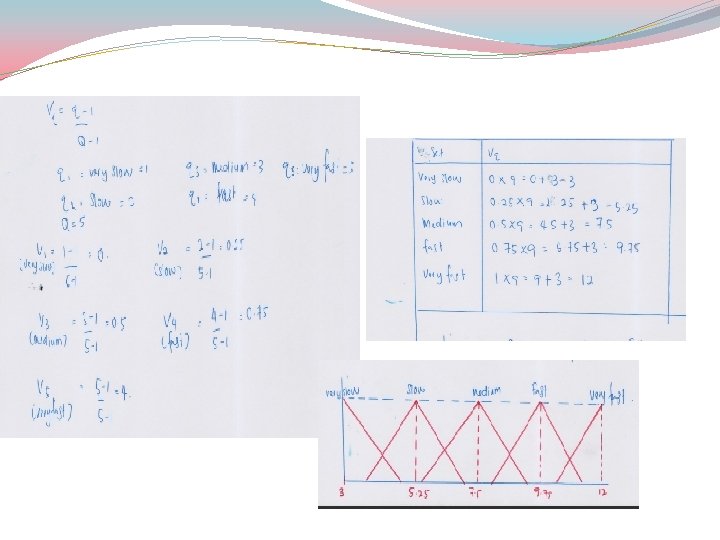 Vq = q-1
Q-1
q1 = very slow = 1 q3 = medium = 3 q5 = very fast = 5
q2 = slow = 2 q4 = fast = 4
Q=5
V1 = 1- = 0. V2 = 2-1 = 0.25
(very slow) 5-1 (slow) 5-1
V3 = 3-1 = 0.5 V4 = 4-1 = 0.75
(medium) 5-1 (fast) 5-1
V5 = 5-1 = 1.
(very fast) 5-
Set Vq
very slow 0 x 9 = 0 + 3 = 3
Slow 0.25 x 9 = 2.25 + 3 = 5.25
Medium 0.5 x 9 = 4.5 + 3 = 7.5
fast 0.75 x 9 = 6.75 + 3 = 9.75
Very fast 1 x 9 = 9 + 3 = 12
very slow slow medium fast very fast.
3 5.25 7.5 9.75 12